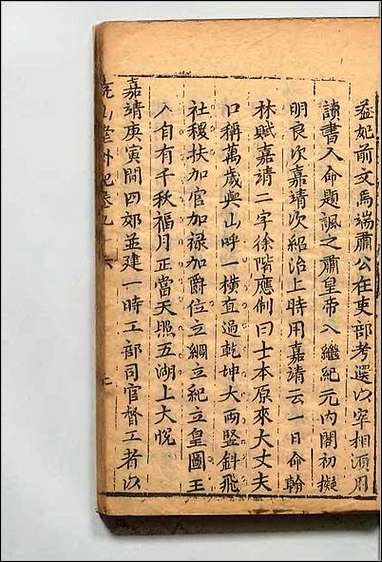 益妃前文馬端肅公在吏部考選以宰相須用
讀書人命題諷之肅皇帝入繼紀元內閣初擬
明良次嘉靖次紹治上時用嘉靖云一日命翰
林賦嘉靖二字徐階應制曰士本原來大丈夫
口稱萬歲與山呼一橫直過乾坤大兩豎斜飛
社稷扶加官加祿加爵位立綱立紀立皇圖王
人自有千秋福月正當天照五湖上大悅
嘉靖庚寅間四郊並建一時工部司官督工者以
堯山堂外紀卷九